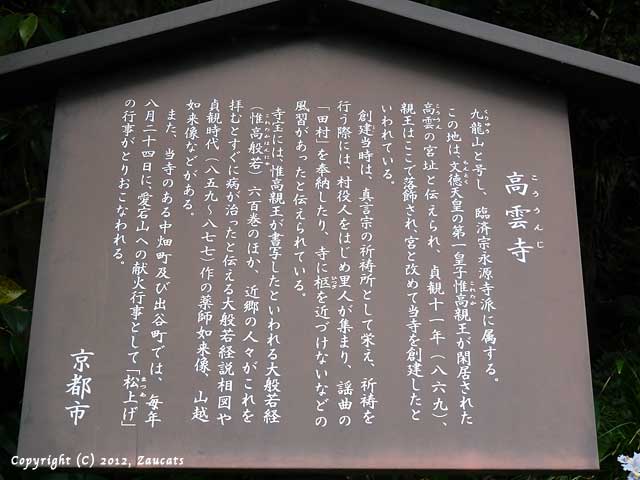 高雲寺
こううんじ
九龍山と号し、臨済宗永源寺派に属する。
この地は、文徳天皇の第一皇子惟高親王が閑居された
高雲の宮址と伝えられ、貞観十一年（八六九）、
親王はここで落飾され、宮と改めて当寺を創建したと
いわれている。
創建当時は、真言宗の祈祷所として栄え、祈祷を
行う際には、村役人をはじめ里人が集まり、謡曲の
「田村」を奉納したり、寺に柩を近づけないなどの
風習があったと伝えられている。
寺宝には、惟高親王が書写したといわれる大般若経
（惟高般若）六百巻のほか、近郷の人々がこれを
拝むとすぐに病が治ったと伝える大般若経説相図や
貞観時代（八五九～八七七）作の薬師如来像、山越
如来像などがある。
また、当寺のある中畑町及び出谷町では、毎年
八月二十四日に、愛宕山への献火行事として「松上げ」
の行事がとりおこなわれる。
京都市
Copyright (C) 2012, Zaucats